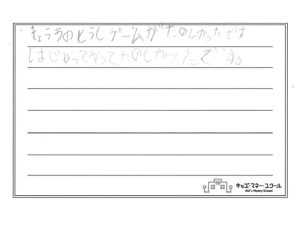 きょうのとうしゲームがたのしかったです
はじめてやってたのしかったです。
キッズ・マネー・スクール
Kid's Money School